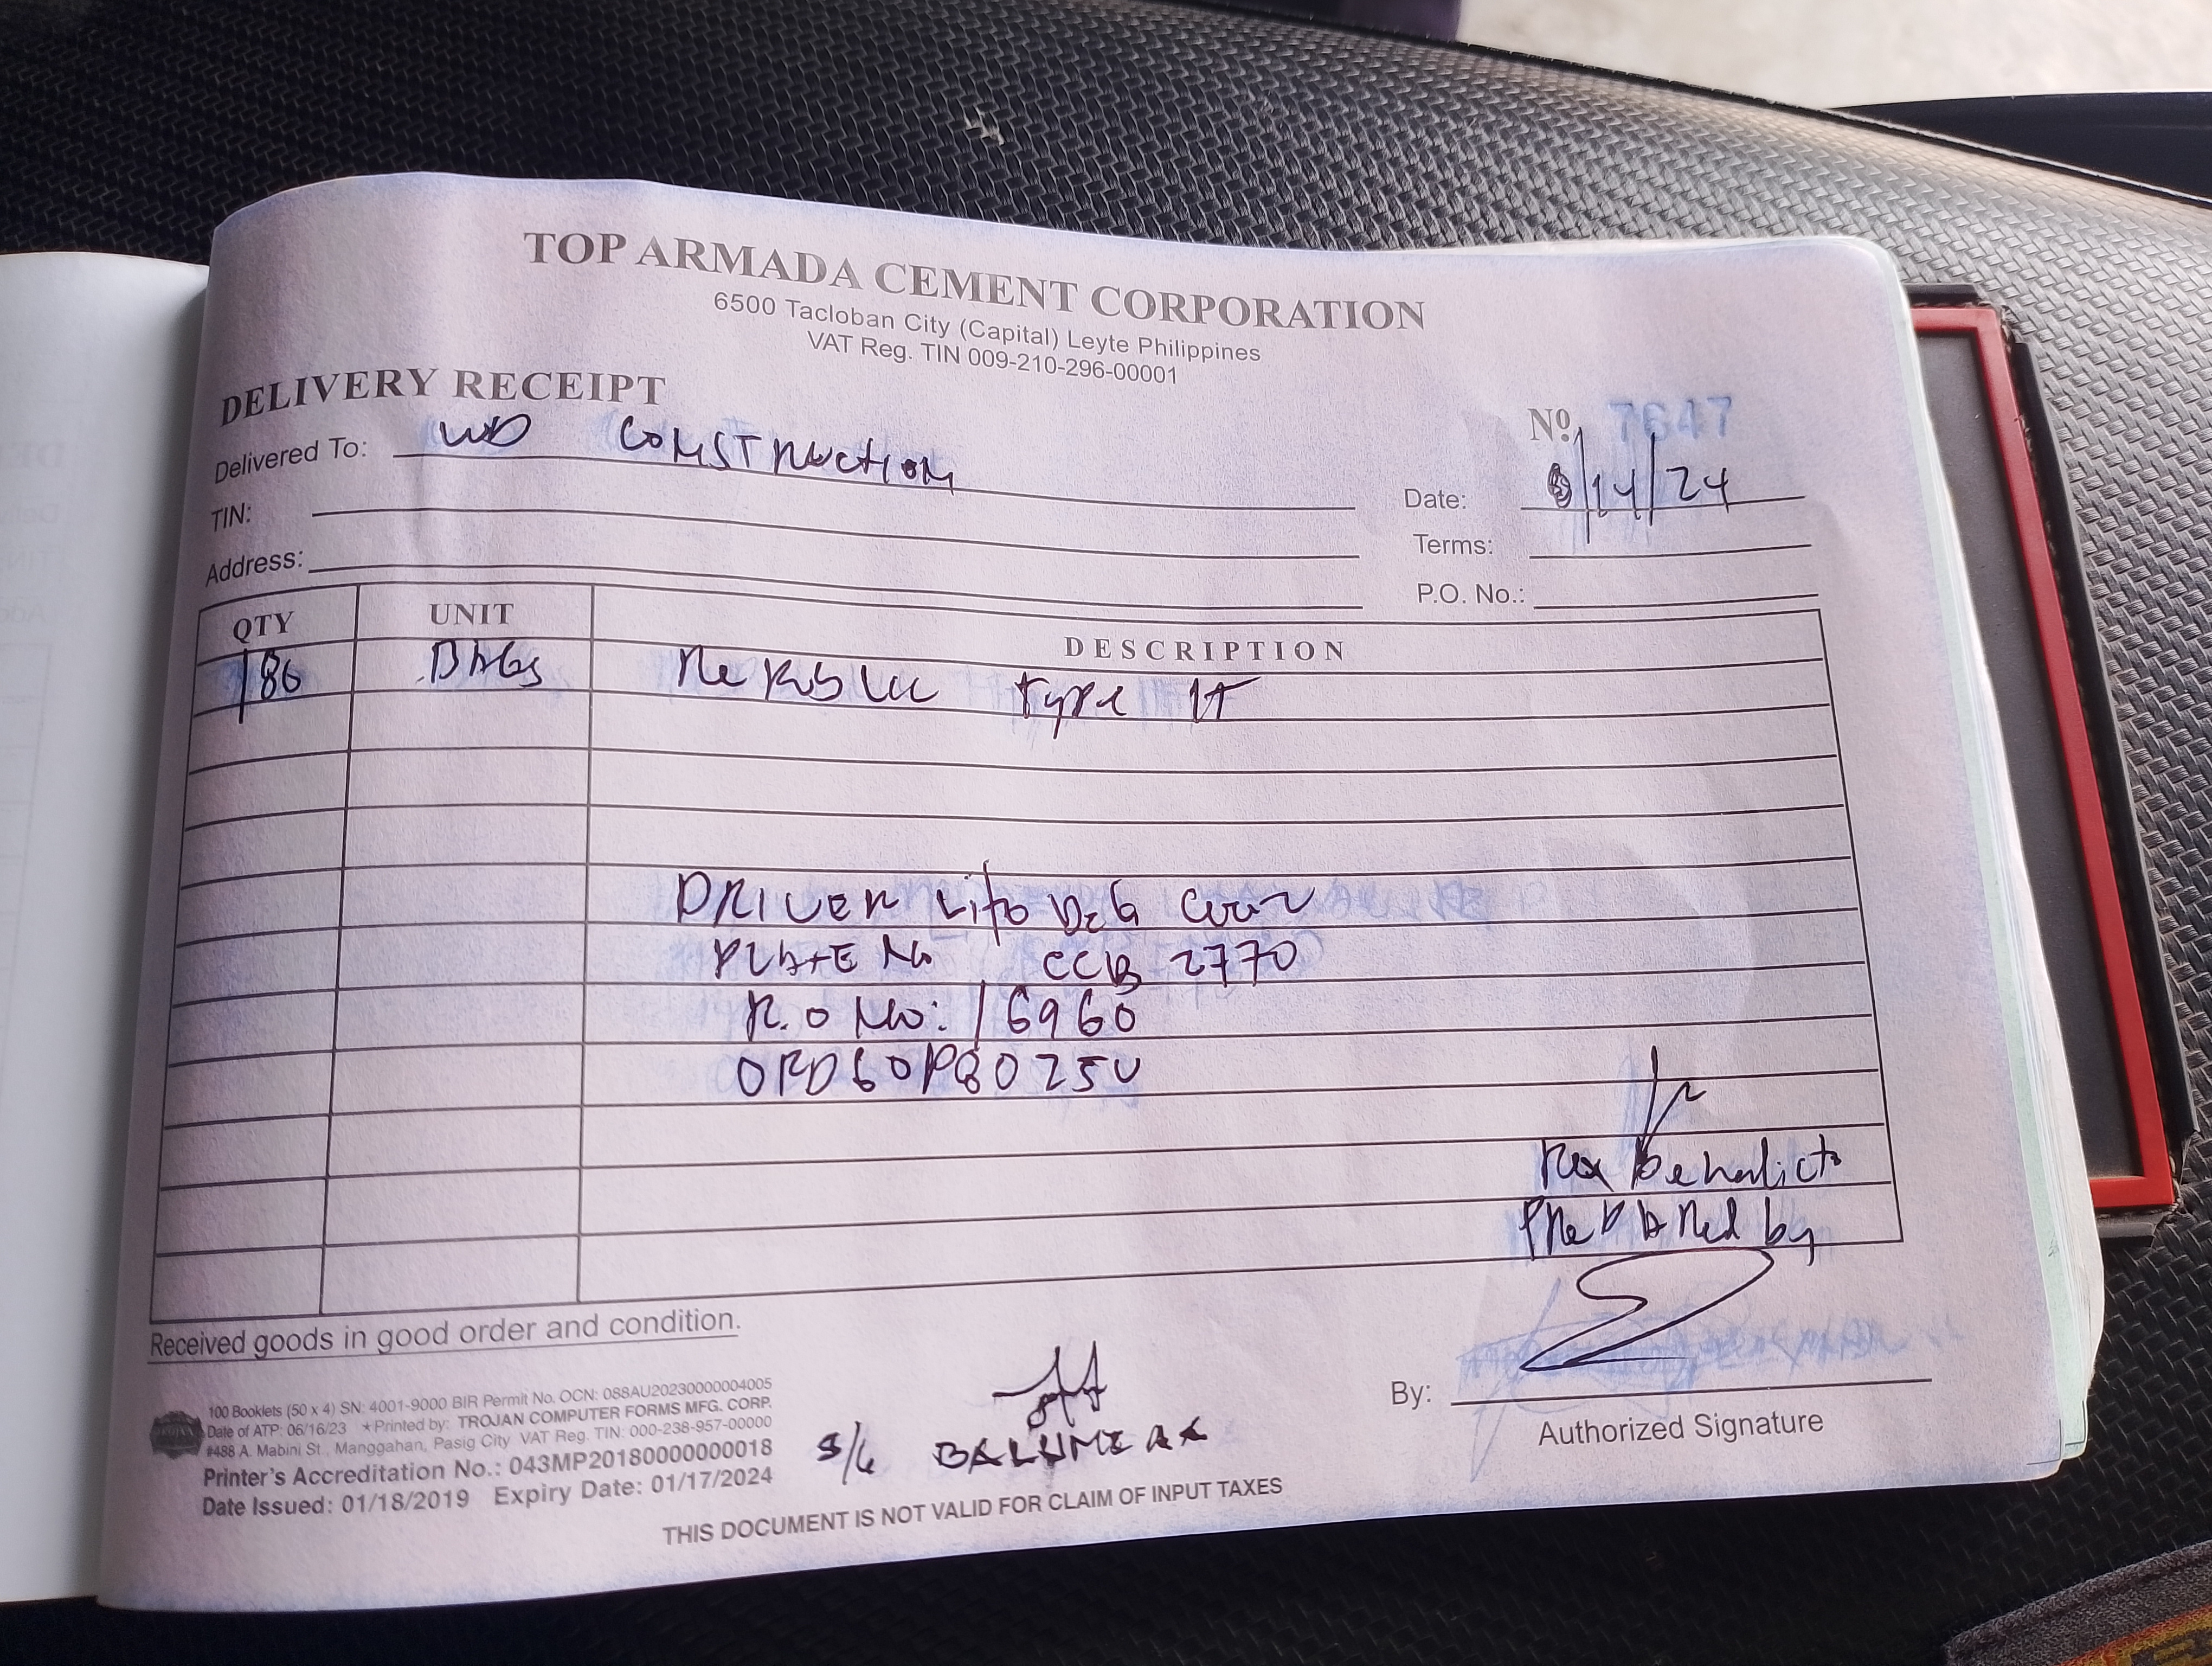 TOP ARMADA CEMENT CORPORATION
6500 Tacloban City (Capital) Leyte Philippines
VAT Reg. TIN 009-210-296-00001
DELIVERY RECEIPT
Nº 7647
Delivered To: WD CONSTRUCTION
Date: /14/24
TIN:
Terms:
Address:
P.O. No.:
QTY UNIT DESCRIPTION
180 BAGS Republic Type 1T
DRIVER Lito Dela Cruz
PLATE No CCB 2770
R.O No: 16960
Rex Benedict
Prepared by
Received goods in good order and condition.
100 Booklets (50 x 4) SN: 4001-9000 BIR Permit No. OCN: 088AU20230000004005
Date of ATP: 06/16/23 ★Printed by: TROJAN COMPUTER FORMS MFG. CORP.
#488 A. Mabini St., Manggahan, Pasig City VAT Reg. TIN: 000-238-957-00000
Printer's Accreditation No.: 043MP20180000000018
Date Issued: 01/18/2019 Expiry Date: 01/17/2024
By:
Authorized Signature
S/G
THIS DOCUMENT IS NOT VALID FOR CLAIM OF INPUT TAXES